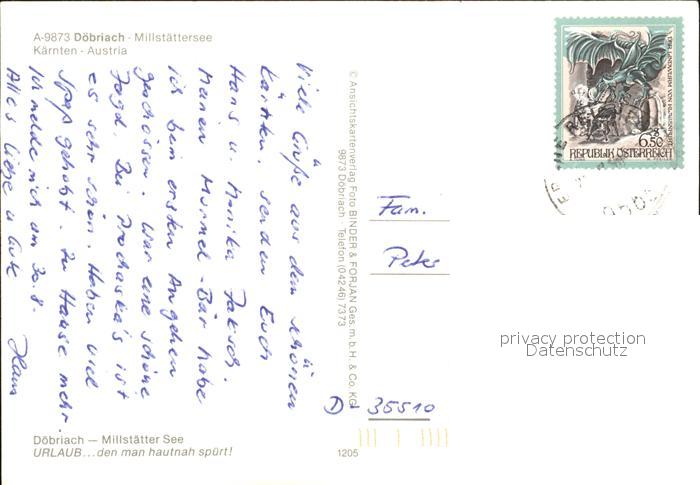 A-9873 Döbriach - Millstättersee
Kärnten - Austria
Viele Grüße aus dem schönen
Kärnten senden Euch
Hans u. Monika Jaksch.
Meinen Murmel-Bär habe
ich beim ersten Angehen
geschossen. War eine schöne
Jagd. Bei Prochaska's ist
es sehr schön. Haben viel
Spaß gehabt. Zu Hause mehr.
Ich melde mich am 30.8.
Alles Liebe u. Gute
Hans
Döbriach — Millstätter See
URLAUB...den man hautnah spürt!
© Ansichtskartenverlag Foto BINDER & FORJAN Ges.m.b.H. & Co. KG
9873 Döbriach · Telefon (04246) 7373
1205
DER LINDWURM VON KLAGENFURT
6.50
REPUBLIK ÖSTERREICH
Fam.
Peter
D- 35510
privacy protection
Datenschutz